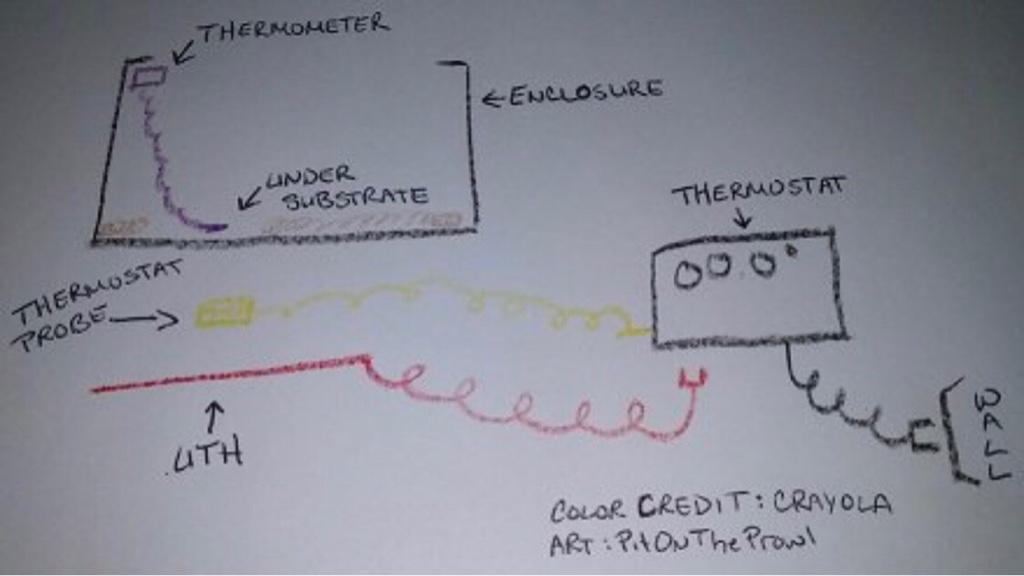 THERMOMETER
ENCLOSURE
UNDER
SUBSTRATE
THERMOSTAT
THERMOSTAT
PROBE
UTH
WALL
COLOR CREDIT: CRAYOLA
ART: PitOnTheProwl